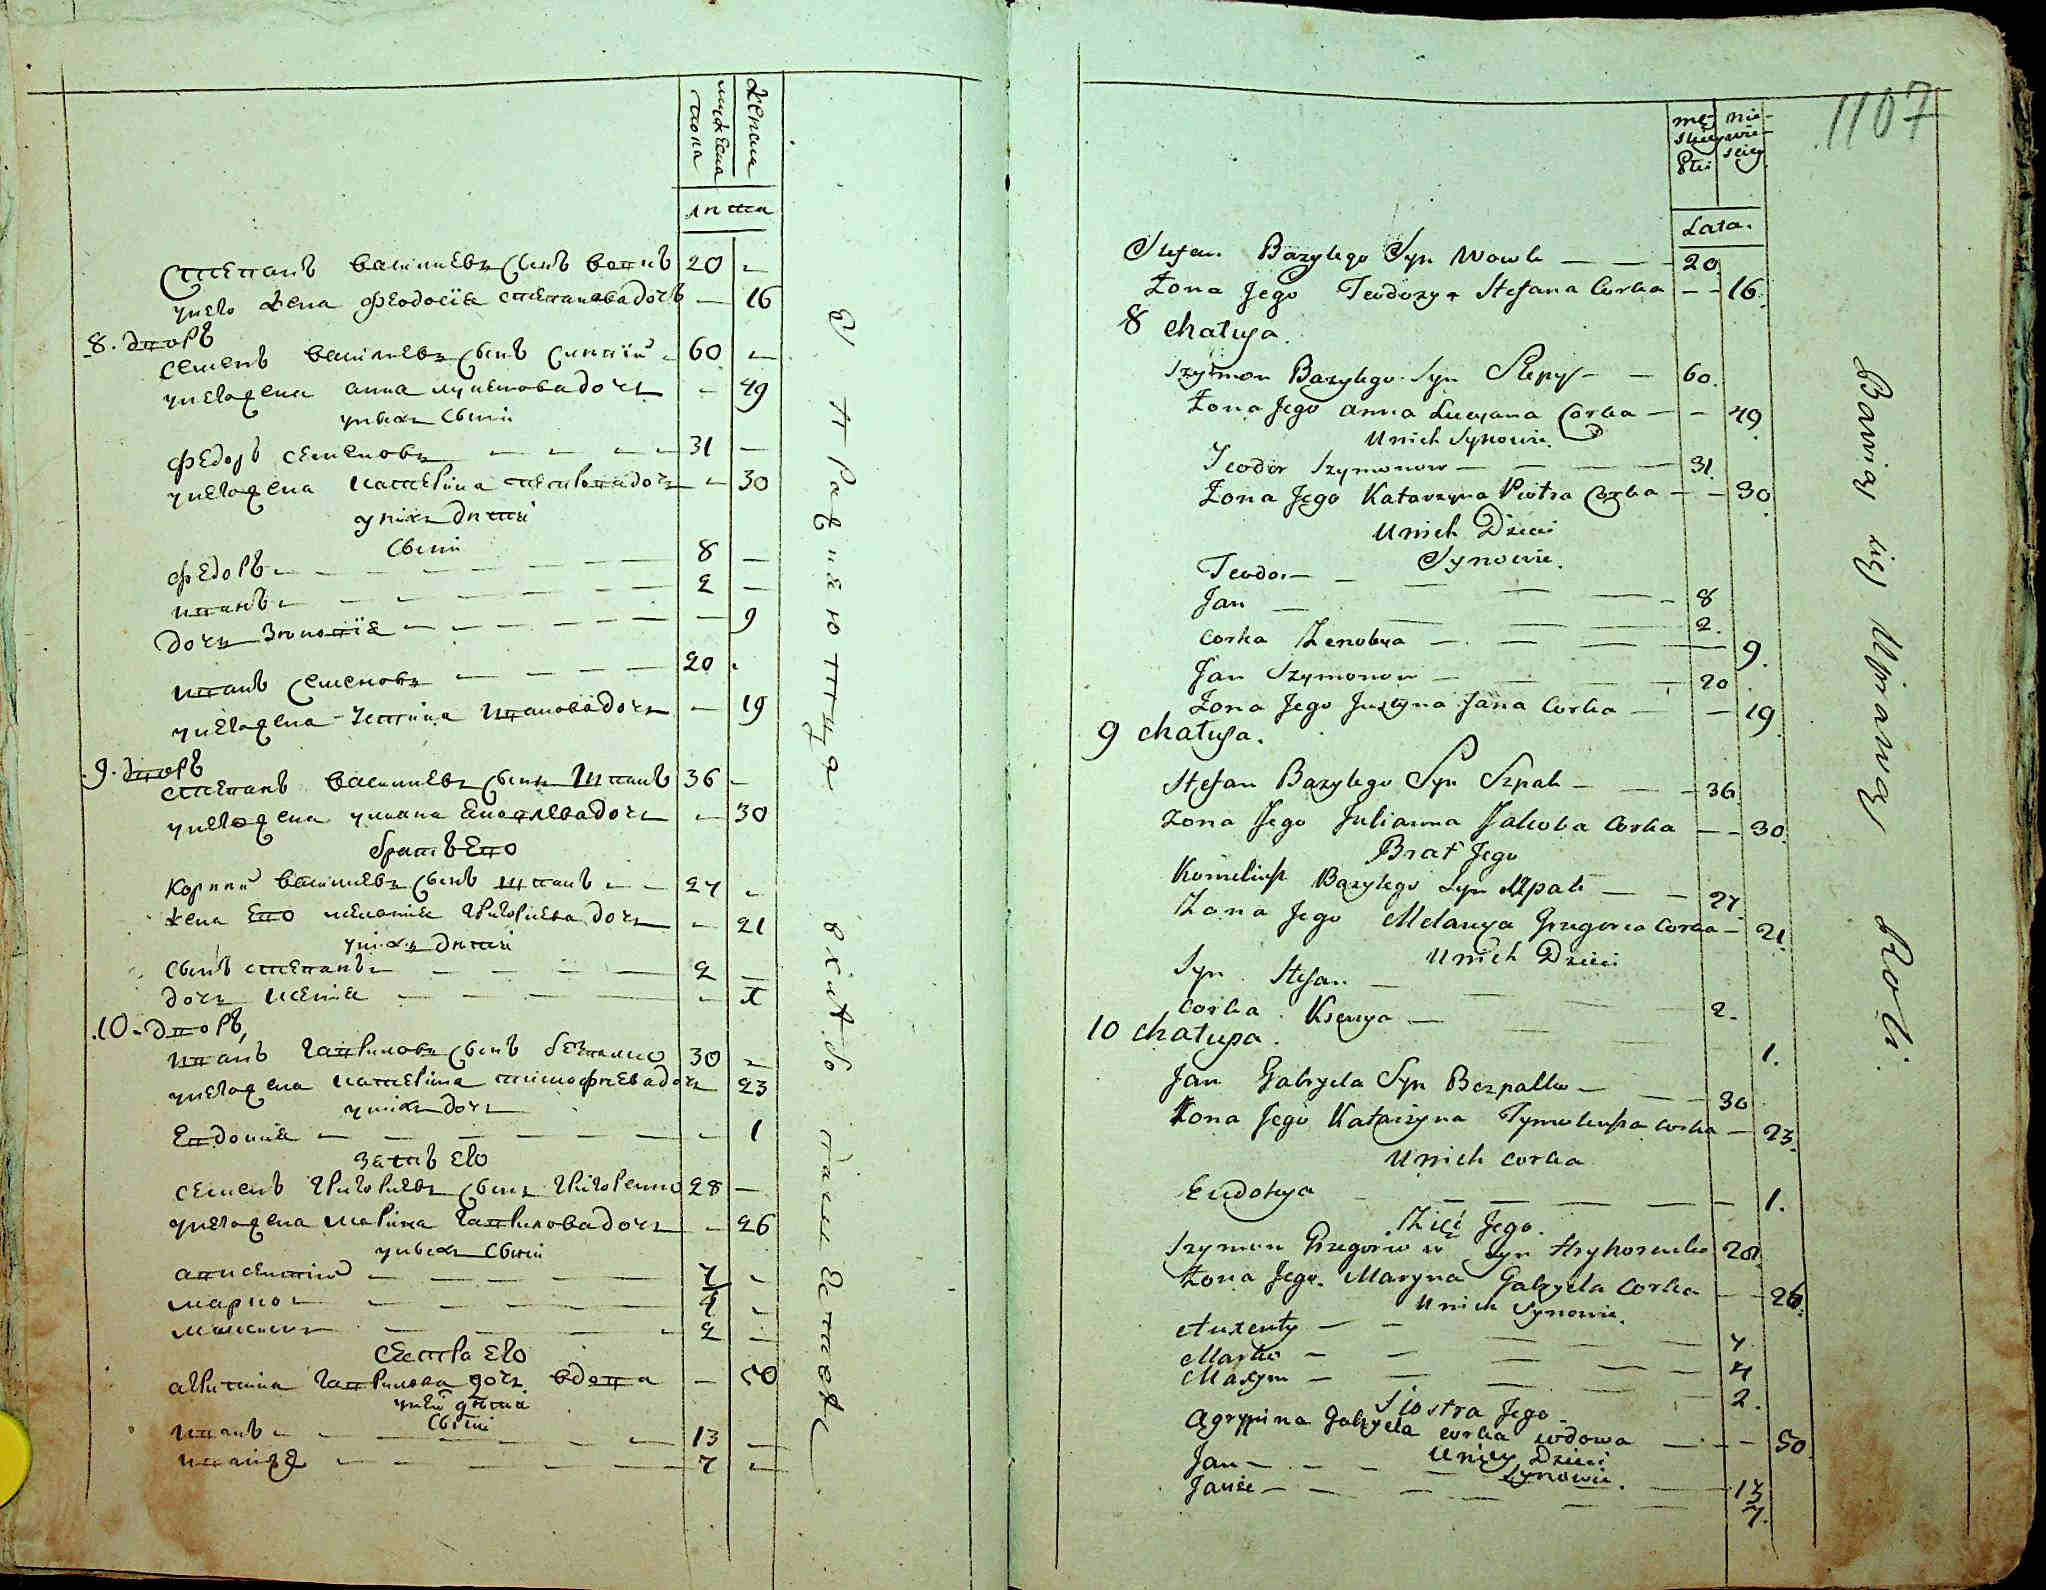 мужеска пола
женска
лѣта
Степанъ васильевъ сынъ вовкъ 20
унего жена феодосіѧ степановадочь — 16
8. дворъ
семенъ васильевъ сынъ слепій 60
унегожена анна лукиановадочь — 49
унихъ сыни
федоръ семеновъ — — — 31 —
унегожена катеріна петровадочь — 30
унихъ дѣти
сыни
федоръ — — — — 8 —
иванъ — — — — 2 —
дочь зѣновіѧ — — — — 9
иванъ семеновъ — — — 20
унегожена устіна ивановадочь — 19
9. дворъ
степанъ васильевъ сынъ шпакъ 36 —
унегожена улиана ековлевадочь — 30
братъ Его
корнѣй васильевъ сынъ шпакъ — 27
жена Его меланіѧ григориевадочь — 21
унихъ дѣти
сынъ степанъ — — — 2 —
дочь ксеніѧ — — — — 1
10. дворъ
иванъ гавриловъ сынъ безпалко 30
унегожена катеріна тимофѣевадочь 23
унихъ дочь
Евдокиѧ — — — — 1
зѧть его
семенъ григориевъ сынъ григоренко 28 —
унегожена маріна гавриловадочь — 26
унихъ сыни
авксентій — — — 7 —
марко — — — 4 —
максимъ — — — 2 —
сестра его
агрипіна гаврилова дочь вдова — 50
унеи дѣти
сыни
иванъ — — — 13 —
иванъ — — — 7 —
męskiey Płci
niewieściey
Lata.
Stefan Bazylego Syn Wowk — — 20
Żona Jego Teodozya Stefana Corka — — 16.
8 chałupa.
Szymon Bazylego Syn Slepy — — 60.
Żona Jego anna Lucyana Corka — — 49.
U nich Synowie.
Teodor Szymonow — — — 31.
Żona Jego Katarzyna Piotra Corka — — 30
U nich Dzieci
Synowie.
Teodor — — — — 8
Jan — — — — 2.
corka Zenobya — — — — 9.
Jan Szymonow — — — 20
Żona Jego Justyna Jana Corka — — 19
9 chałupa.
Stefan Bazylego Syn Szpak — — — 36.
Żona Jego Julianna Jakoba Corka — — 30.
Brat Jego
Korneliusz Bazylego Syn Szpak — — 27.
Żona Jego Melanya Grzegorza Corka — 21.
U nich Dzieci
Syn Stefan — — — 2.
Corka Ksenya — — — 1.
10 chałupa.
Jan Gabryela Syn Bezpalko — — — 30
Żona Jego Katarzyna Tymoteusza corka — 23.
U nich corka
Eudokya — — — — 1.
Zięć Jego.
Szymon Grzegorzow Syn Hryhorenko 28.
Żona Jego Maryna Gabryela Corka — — 26.
U nich Synowie.
Auxenty — — — — 7
Marko — — — — 4
Maxym — — — — 2.
Siostra Jego
Agrypina Gabryela corka wdowa — — 50
U niey Dzieci
Synowie.
Jan — — — — 13
Janże — — — — 7.
Bawią się Uprawą Roli.
1107